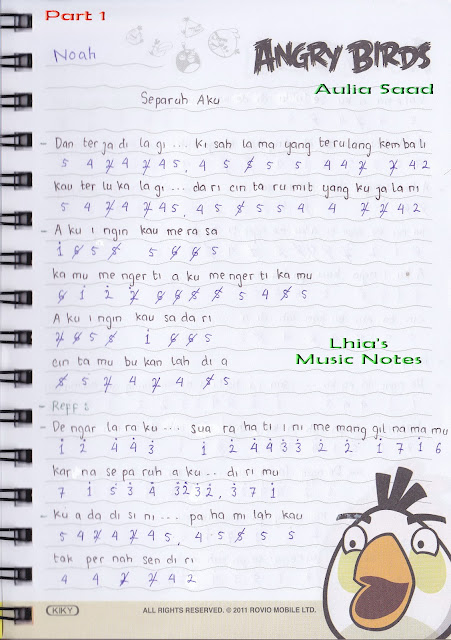 Part 1
Noah
ANGRY BIRDS
Aulia Saad
Separuh Aku
- Dan ter ja di la gi ... ki sah la ma yang terulang kem ba li
5 4 7 4 7 4 5 . 4 5 5 5 5 4 4 7 7 4 2
kau ter lu ka la gi ... da ri cin ta ru mit yang ku ja la ni
5 4 7 4 7 4 5 . 4 5 5 5 5 4 4 7 7 4 2
- A ku i ngin kau me ra sa
1 6 5 6 5 6 6 5
ka mu me nger ti a ku me nger ti ka mu
6 1 2 7 6 6 5 6 5 4 5 5
A ku i ngin kau sa da ri
7 6 5 6 1 6 6 5
cin ta mu bu kan lah di a
6 5 7 4 7 4 5 5
- Reff :
- De ngar la ra ku ... sua ra ha ti i ni me mang gil na ma mu
1 2 4 4 3 1 2 4 4 3 3 2 2 1 7 1 6
kar na se pa ruh a ku .. di ri mu
7 1 5 3 4 3 2 3 2 . 3 7 1
- ku a da di si ni ... pa ha mi lah kau
5 4 7 4 7 4 5 . 4 5 5 5 5
tak per nah sen di ri
4 4 7 7 4 2
Lhia's
Music Notes
KIKY
ALL RIGHTS RESERVED. © 2011 ROVIO MOBILE LTD.